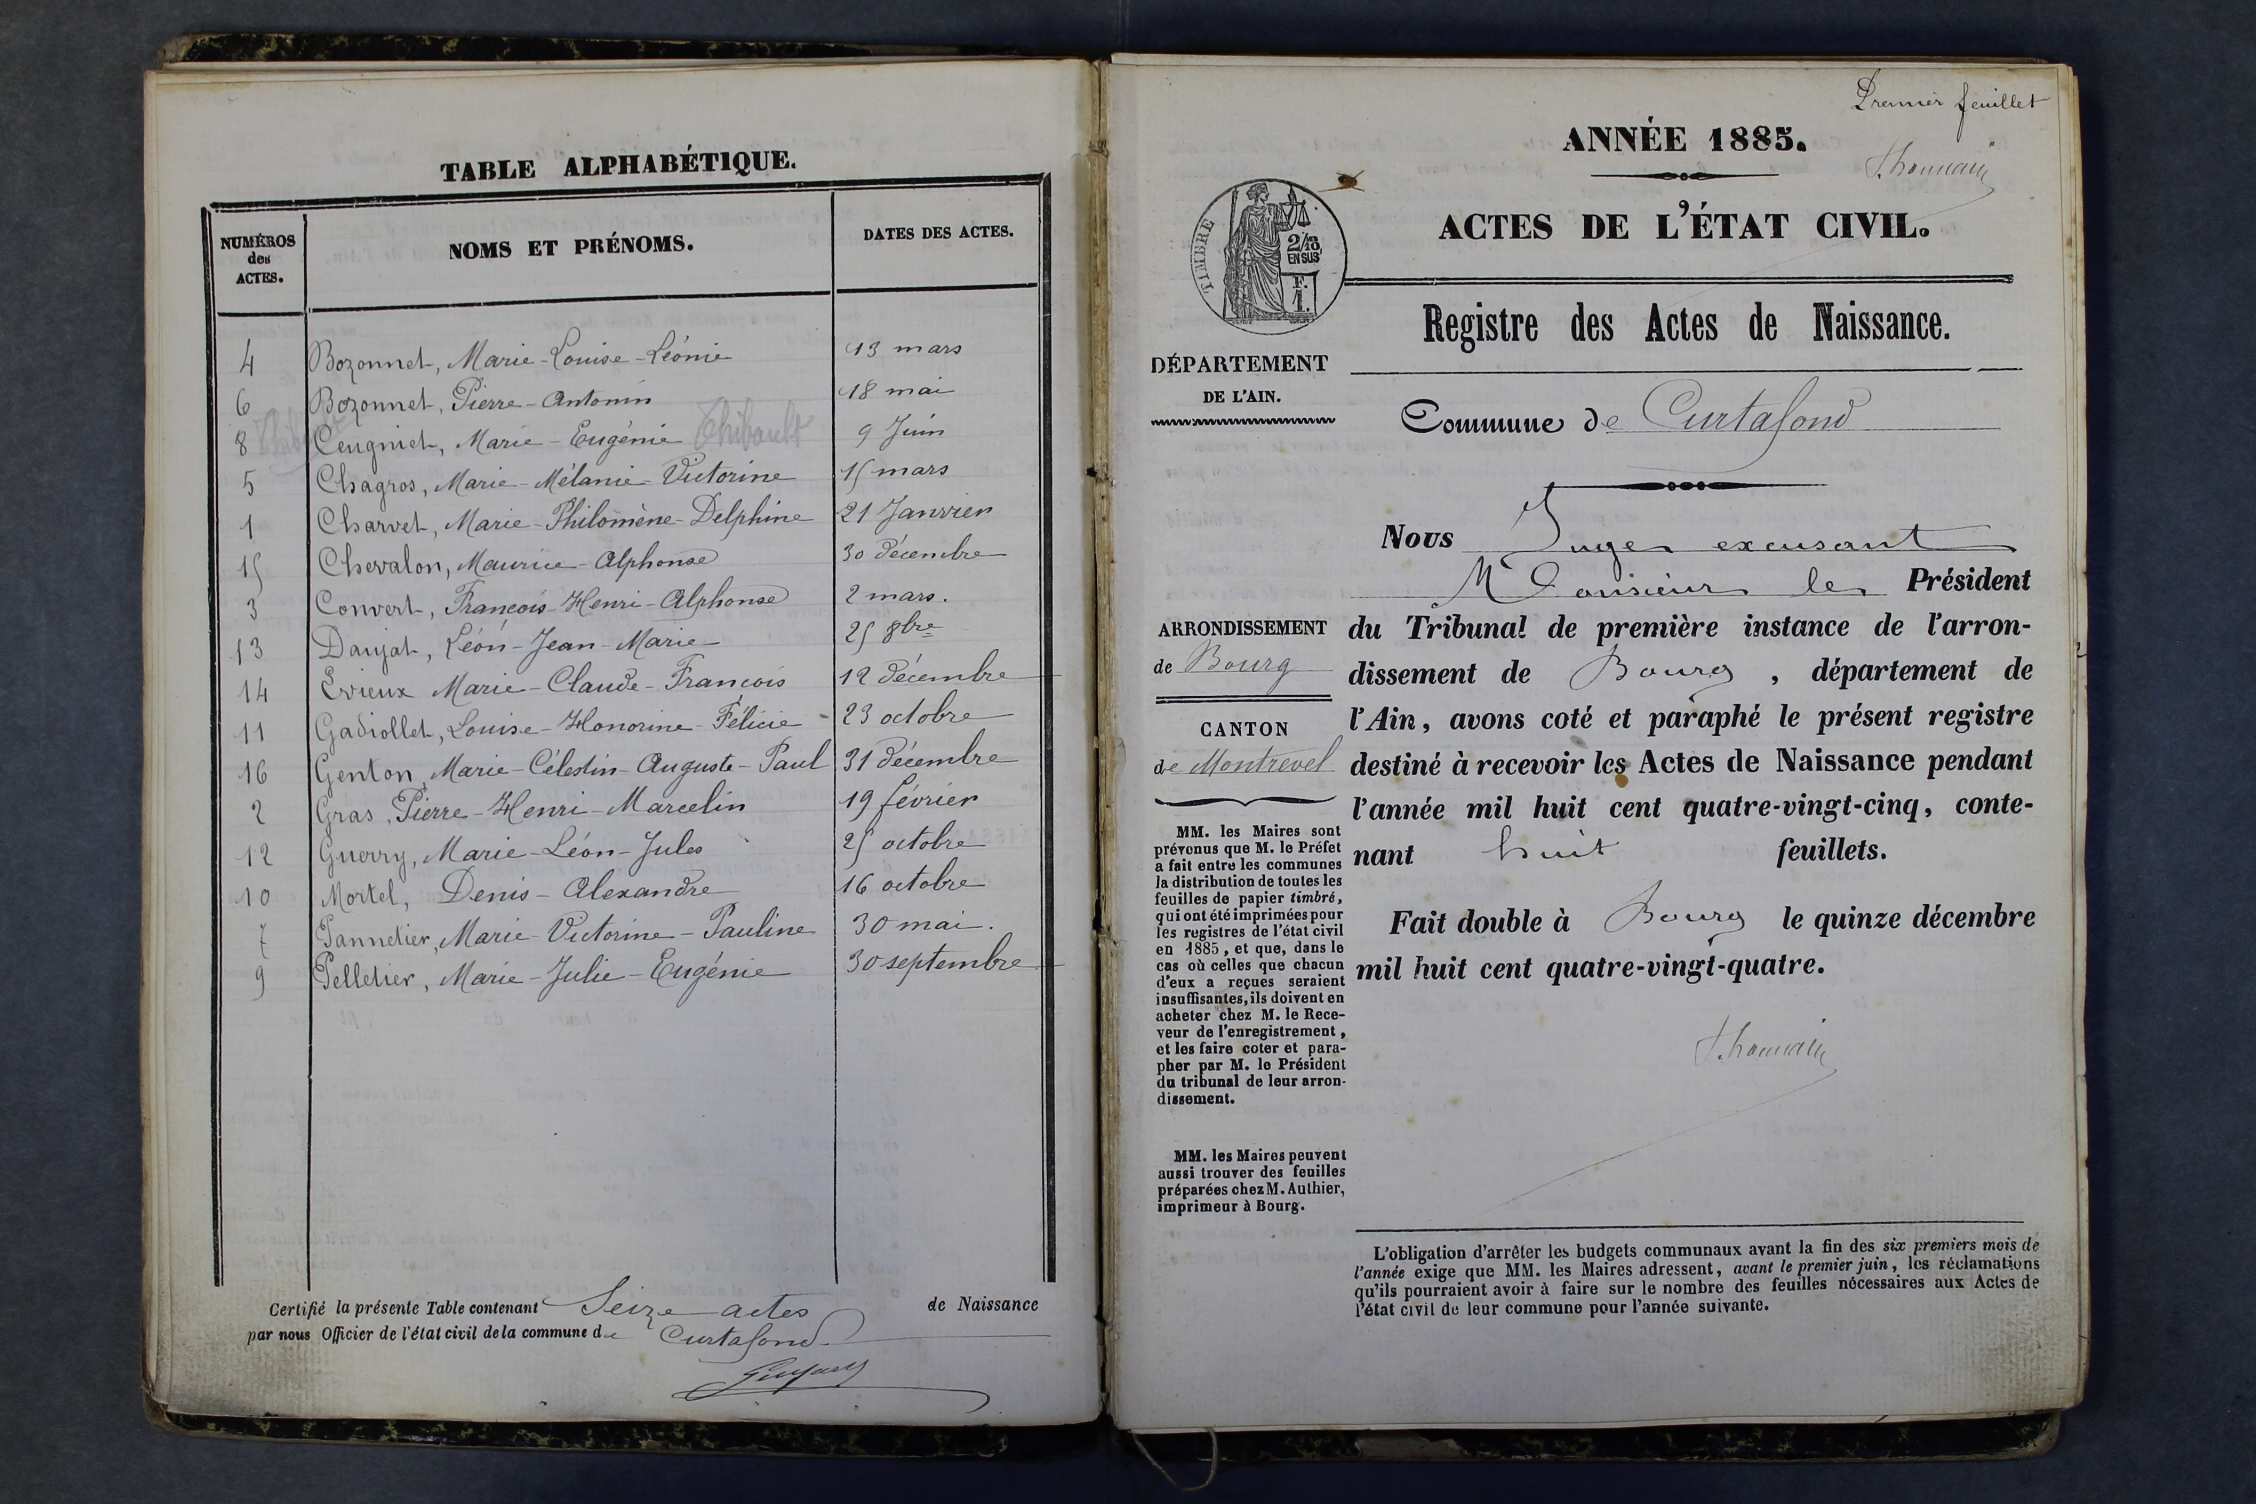 TABLE ALPHABÉTIQUE.
NUMÉROS des ACTES. NOMS ET PRÉNOMS. DATES DES ACTES.
4 Bozonnet, Marie-Louise-Léonie 13 mars
6 Bozonnet, Pierre-Antonin 18 mai
8 Ceugniet, Marie-Eugénie Thibault 9 Juin
5 Chagros, Marie-Mélanie-Victorine 15 mars
1 Charvet, Marie-Philomène-Delphine 21 Janvier
15 Chevalon, Maurice-Alphonse 30 décembre
3 Convert, François-Henri-Alphonse 2 mars.
13 Daujat, Léon-Jean-Marie 25 8bre
14 Evieux Marie-Claude-François 12 décembre
11 Gadiollet, Louise-Honorine-Félicie 23 octobre
16 Genton, Marie-Célestin-Auguste-Paul 31 décembre
2 Gras, Pierre-Henri-Marcelin 19 février
12 Guerry, Marie-Léon-Jules 25 octobre
10 Mortel, Denis-Alexandre 16 octobre
7 Pannetier, Marie-Victorine-Pauline 30 mai.
9 Pelletier, Marie-Julie-Eugénie 30 septembre
Certifié la présente Table contenant Seize actes de Naissance
par nous Officier de l'état civil de la commune de Curtafond
Premier feuillet
ANNÉE 1885.
ACTES DE L'ÉTAT CIVIL.
TIMBRE
2/10
EN SUS
F.
1.
Registre des Actes de Naissance.
DÉPARTEMENT
DE L'AIN.
Commune de Curtafond
ARRONDISSEMENT
de Bourg
CANTON
de Montrevel
MM. les Maires sont
prévenus que M. le Préfet
a fait entre les communes
la distribution de toutes les
feuilles de papier timbré,
qui ont été imprimées pour
les registres de l'état civil
en 1885, et que, dans le
cas où celles que chacun
d'eux a reçues seraient
insuffisantes, ils doivent en
acheter chez M. le Rece-
veur de l'enregistrement,
et les faire coter et para-
pher par M. le Président
du tribunal de leur arron-
dissement.
MM. les Maires peuvent
aussi trouver des feuilles
préparées chez M. Authier,
imprimeur à Bourg.
Nous Juge excusant
Monsieur le Président
du Tribunal de première instance de l'arron-
dissement de Bourg, département de
l'Ain, avons coté et paraphé le présent registre
destiné à recevoir les Actes de Naissance pendant
l'année mil huit cent quatre-vingt-cinq, conte-
nant huit feuillets.
Fait double à Bourg le quinze décembre
mil huit cent quatre-vingt-quatre.
L'obligation d'arrêter les budgets communaux avant la fin des six premiers mois de
l'année exige que MM. les Maires adressent, avant le premier juin, les réclamations
qu'ils pourraient avoir à faire sur le nombre des feuilles nécessaires aux Actes de
l'état civil de leur commune pour l'année suivante.